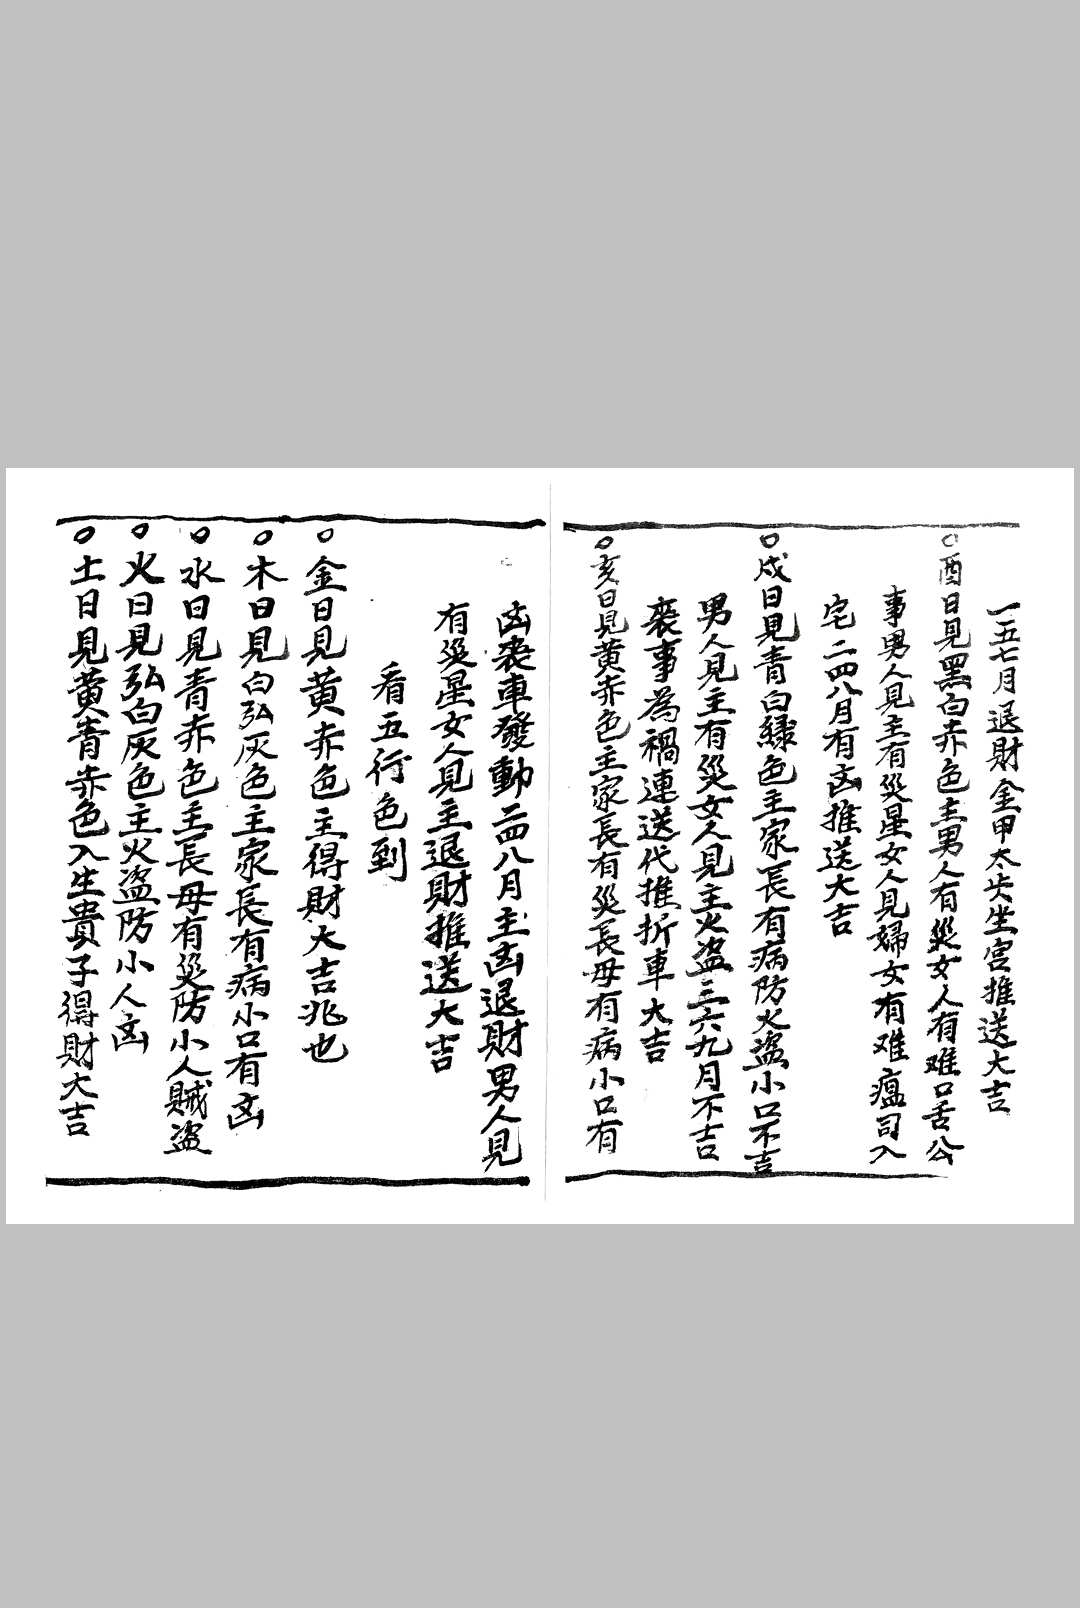 一五七月退財金甲太歩坐宮推送大吉
○酉日見黑白赤色主男人有災女人有难口舌公
事男人見主有災星女人見婦女有难瘟司入
宅二四八月有凶推送大吉
○戍日見青白緑色主家長有病防火盗小口不吉
男人見主有災女人見主火盗三六九月不吉
喪事為禍連送代推折車大吉
○亥日見黄赤色主家長有災長母有病小口有
凶喪車發動二四八月主凶退財男人見
有災星女人見主退財推送大吉
看五行色到
○金日見黄赤色主得財大吉兆也
○木日見白弘灰色主家長有病小口有凶
○水日見青赤色主長母有災防小人賊盗
○火日見弘白灰色主火盗防小人凶
○土日見黄青赤色入生貴子得財大吉